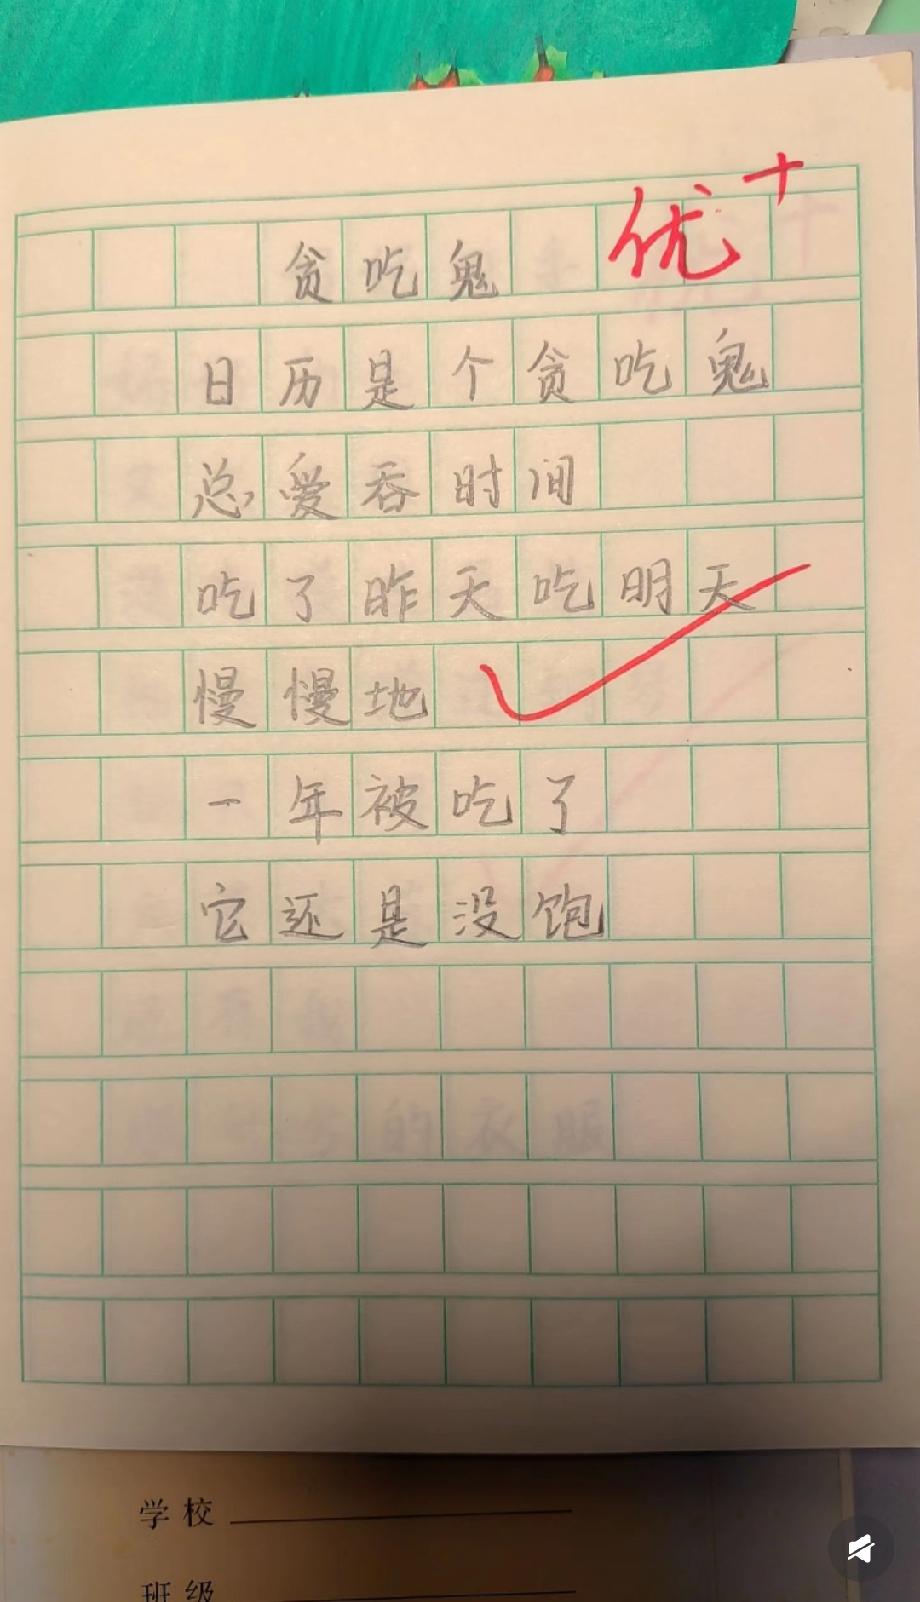 贪吃鬼 优+
日历是个贪吃鬼
总爱吞时间
吃了昨天吃明天
慢慢地
一年被吃了
它还是没饱
的衣服
学校
班级